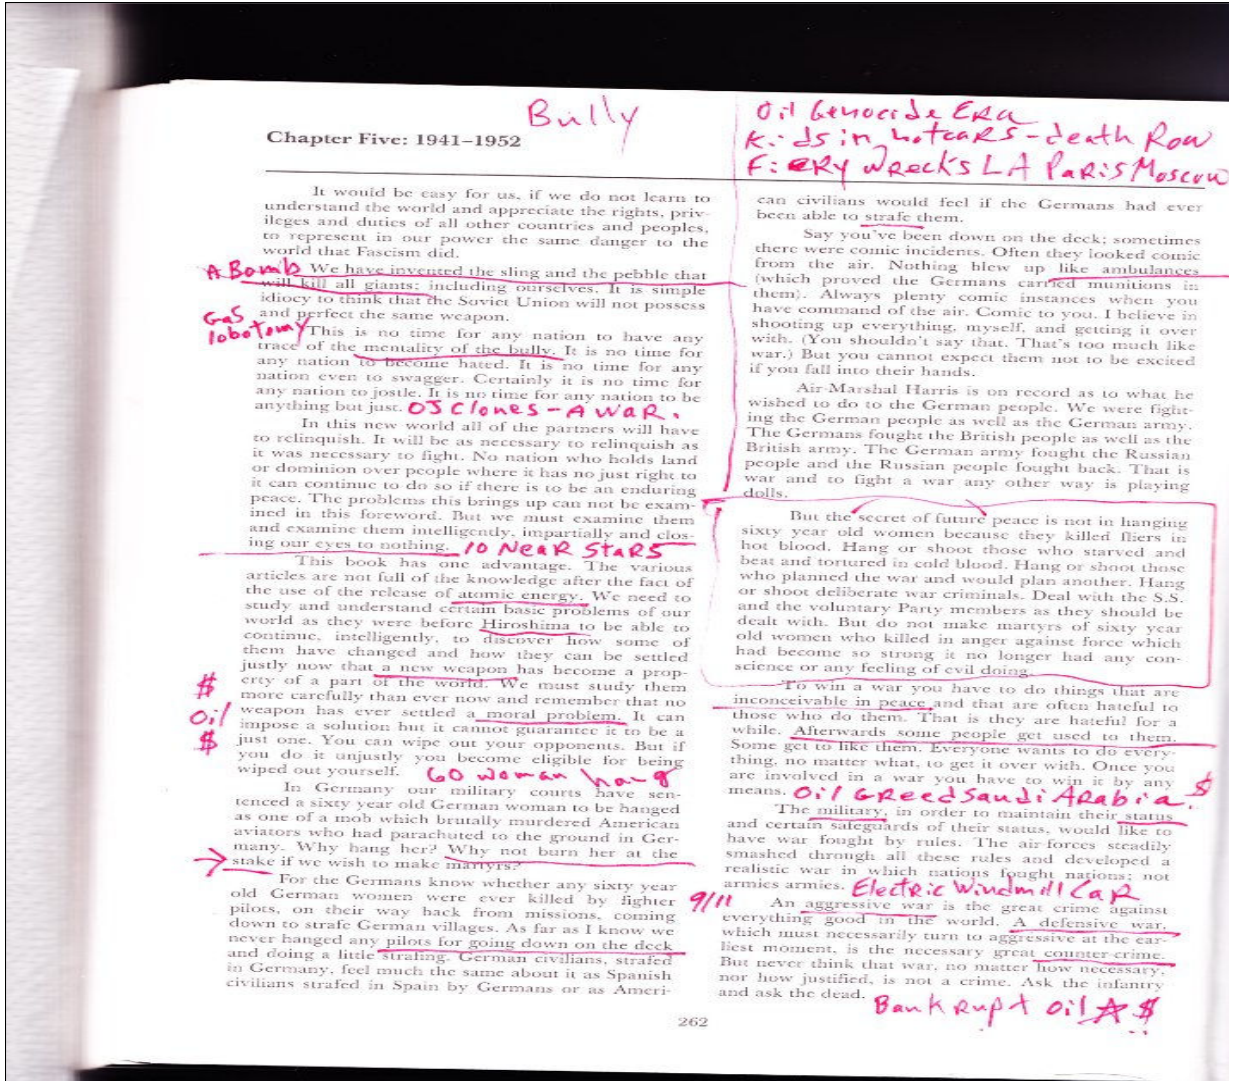 Bully
Oil Genocide ERa
Kids in hotcaRS - death Row
FieRy WRecks LA PaRiS Moscow
Chapter Five: 1941–1952
It would be easy for us, if we do not learn to
understand the world and appreciate the rights, priv-
ileges and duties of all other countries and peoples,
to represent in our power the same danger to the
world that Fascism did.
A Bomb We have invented the sling and the pebble that
will kill all giants; including ourselves. It is simple
idiocy to think that the Soviet Union will not possess
and perfect the same weapon.
Gas
lobotomy
This is no time for any nation to have any
trace of the mentality of the bully. It is no time for
any nation to become hated. It is no time for any
nation even to swagger. Certainly it is no time for
any nation to jostle. It is no time for any nation to be
anything but just. OJ Clones - A WaR.
In this new world all of the partners will have
to relinquish. It will be as necessary to relinquish as
it was necessary to fight. No nation who holds land
or dominion over people where it has no just right to
it can continue to do so if there is to be an enduring
peace. The problems this brings up can not be exam-
ined in this foreword. But we must examine them
and examine them intelligently, impartially and clos-
ing our eyes to nothing. 10 NeaR StaRS
This book has one advantage. The various
articles are not full of the knowledge after the fact of
the use of the release of atomic energy. We need to
study and understand certain basic problems of our
world as they were before Hiroshima to be able to
continue, intelligently, to discover how some of
them have changed and how they can be settled
justly now that a new weapon has become a prop-
erty of a part of the world. We must study them
more carefully than ever now and remember that no
weapon has ever settled a moral problem. It can
impose a solution but it cannot guarantee it to be a
just one. You can wipe out your opponents. But if
you do it unjustly you become eligible for being
wiped out yourself. 60 woman hang
$
Oil
$
In Germany our military courts have sen-
tenced a sixty year old German woman to be hanged
as one of a mob which brutally murdered American
aviators who had parachuted to the ground in Ger-
many. Why hang her? Why not burn her at the
stake if we wish to make martyrs?
For the Germans know whether any sixty year
old German women were ever killed by fighter
pilots, on their way back from missions, coming
down to strafe German villages. As far as I know we
never hanged any pilots for going down on the deck
and doing a little strafing. German civilians, strafed
in Germany, feel much the same about it as Spanish
civilians strafed in Spain by Germans or as Ameri-
can civilians would feel if the Germans had ever
been able to strafe them.
Say you've been down on the deck; sometimes
there were comic incidents. Often they looked comic
from the air. Nothing blew up like ambulances
(which proved the Germans carried munitions in
them). Always plenty comic instances when you
have command of the air. Comic to you. I believe in
shooting up everything, myself, and getting it over
with. (You shouldn't say that. That's too much like
war.) But you cannot expect them not to be excited
if you fall into their hands.
Air-Marshal Harris is on record as to what he
wished to do to the German people. We were fight-
ing the German people as well as the German army.
The Germans fought the British people as well as the
British army. The German army fought the Russian
people and the Russian people fought back. That is
war and to fight a war any other way is playing
dolls.
But the secret of future peace is not in hanging
sixty year old women because they killed fliers in
hot blood. Hang or shoot those who starved and
beat and tortured in cold blood. Hang or shoot those
who planned the war and would plan another. Hang
or shoot deliberate war criminals. Deal with the S.S.
and the voluntary Party members as they should be
dealt with. But do not make martyrs of sixty year
old women who killed in anger against force which
had become so strong it no longer had any con-
science or any feeling of evil doing.
To win a war you have to do things that are
inconceivable in peace and that are often hateful to
those who do them. That is they are hateful for a
while. Afterwards some people get used to them.
Some get to like them. Everyone wants to do every-
thing, no matter what, to get it over with. Once you
are involved in a war you have to win it by any
means. Oil GReed Saudi ARabia. $
The military, in order to maintain their status
and certain safeguards of their status, would like to
have war fought by rules. The air-forces steadily
smashed through all these rules and developed a
realistic war in which nations fought nations; not
armies armies. Electric Windmill CaR
9/11
An aggressive war is the great crime against
everything good in the world. A defensive war,
which must necessarily turn to aggressive at the ear-
liest moment, is the necessary great counter-crime.
But never think that war, no matter how necessary,
nor how justified, is not a crime. Ask the infantry
and ask the dead.
BankRupt Oil $
262